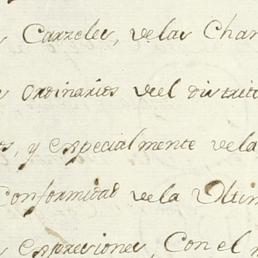 s Carzeles, de las Chan
s ordinarios del distrito
os, y especialmente de la
Conformidad de la Ultim
s expresiones, Con el